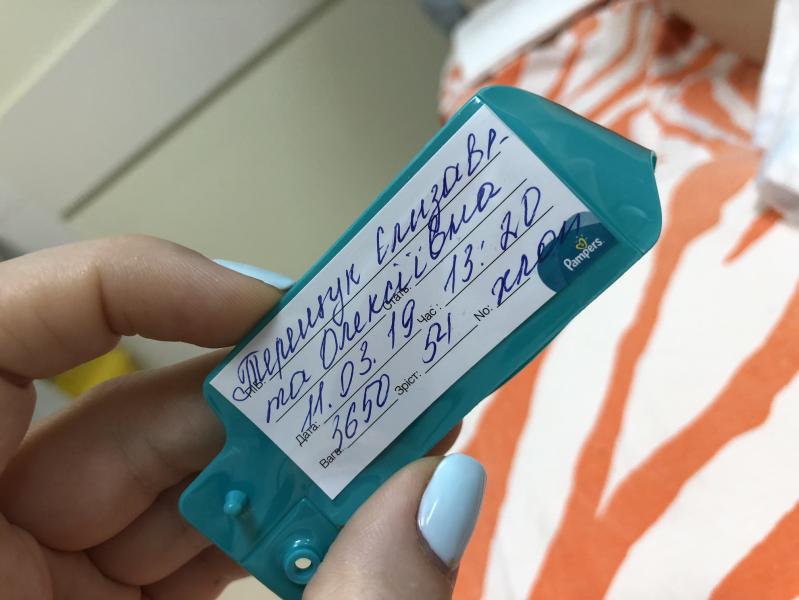 ПІБ: Терещук Єлизаве-
та Олексіївна
Стать:
Дата: 11.03.19 Час: 13:20
Вага: 3650 Зріст: 54 No: хлоп
Pampers